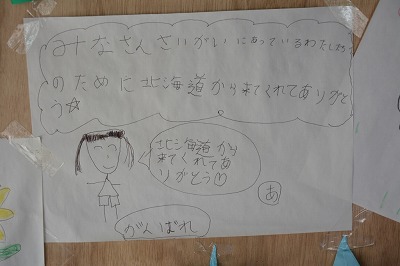 みなさんさいがいにあっているわたしたち
のために北海道から来てくれてありがと
う☆
北海道から
来てくれてあ
りがとう♡
あ
がんばれ